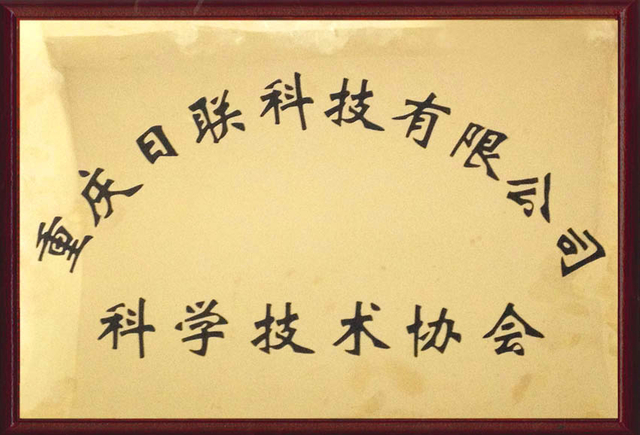 重庆日联科技有限公司
科学技术协会